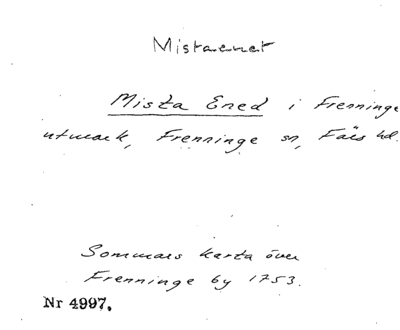 Mistaenet
Mista Ened i Frenninge
utmark, Frenninge sn, Färs hd.
Sommars karta över
Frenninge by 1753.
Nr 4997.